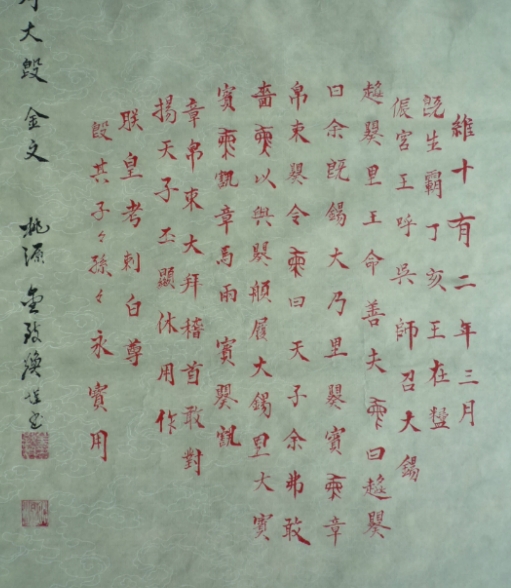 維十有二年三月
既生霸丁亥王在
侲宮王呼吳師召大錫
睽里王命善夫曰睽
曰余既錫大乃里睽賓章
帛束睽令曰天子余弗敢
嗇以與睽履大錫里大賓
賓章馬兩賓睽
章帛束大拜稽首敢對
揚天子丕顯休用作
朕皇考剌白尊
毁其子々孫々永寶用
大毁 金文 桃源 金致煥